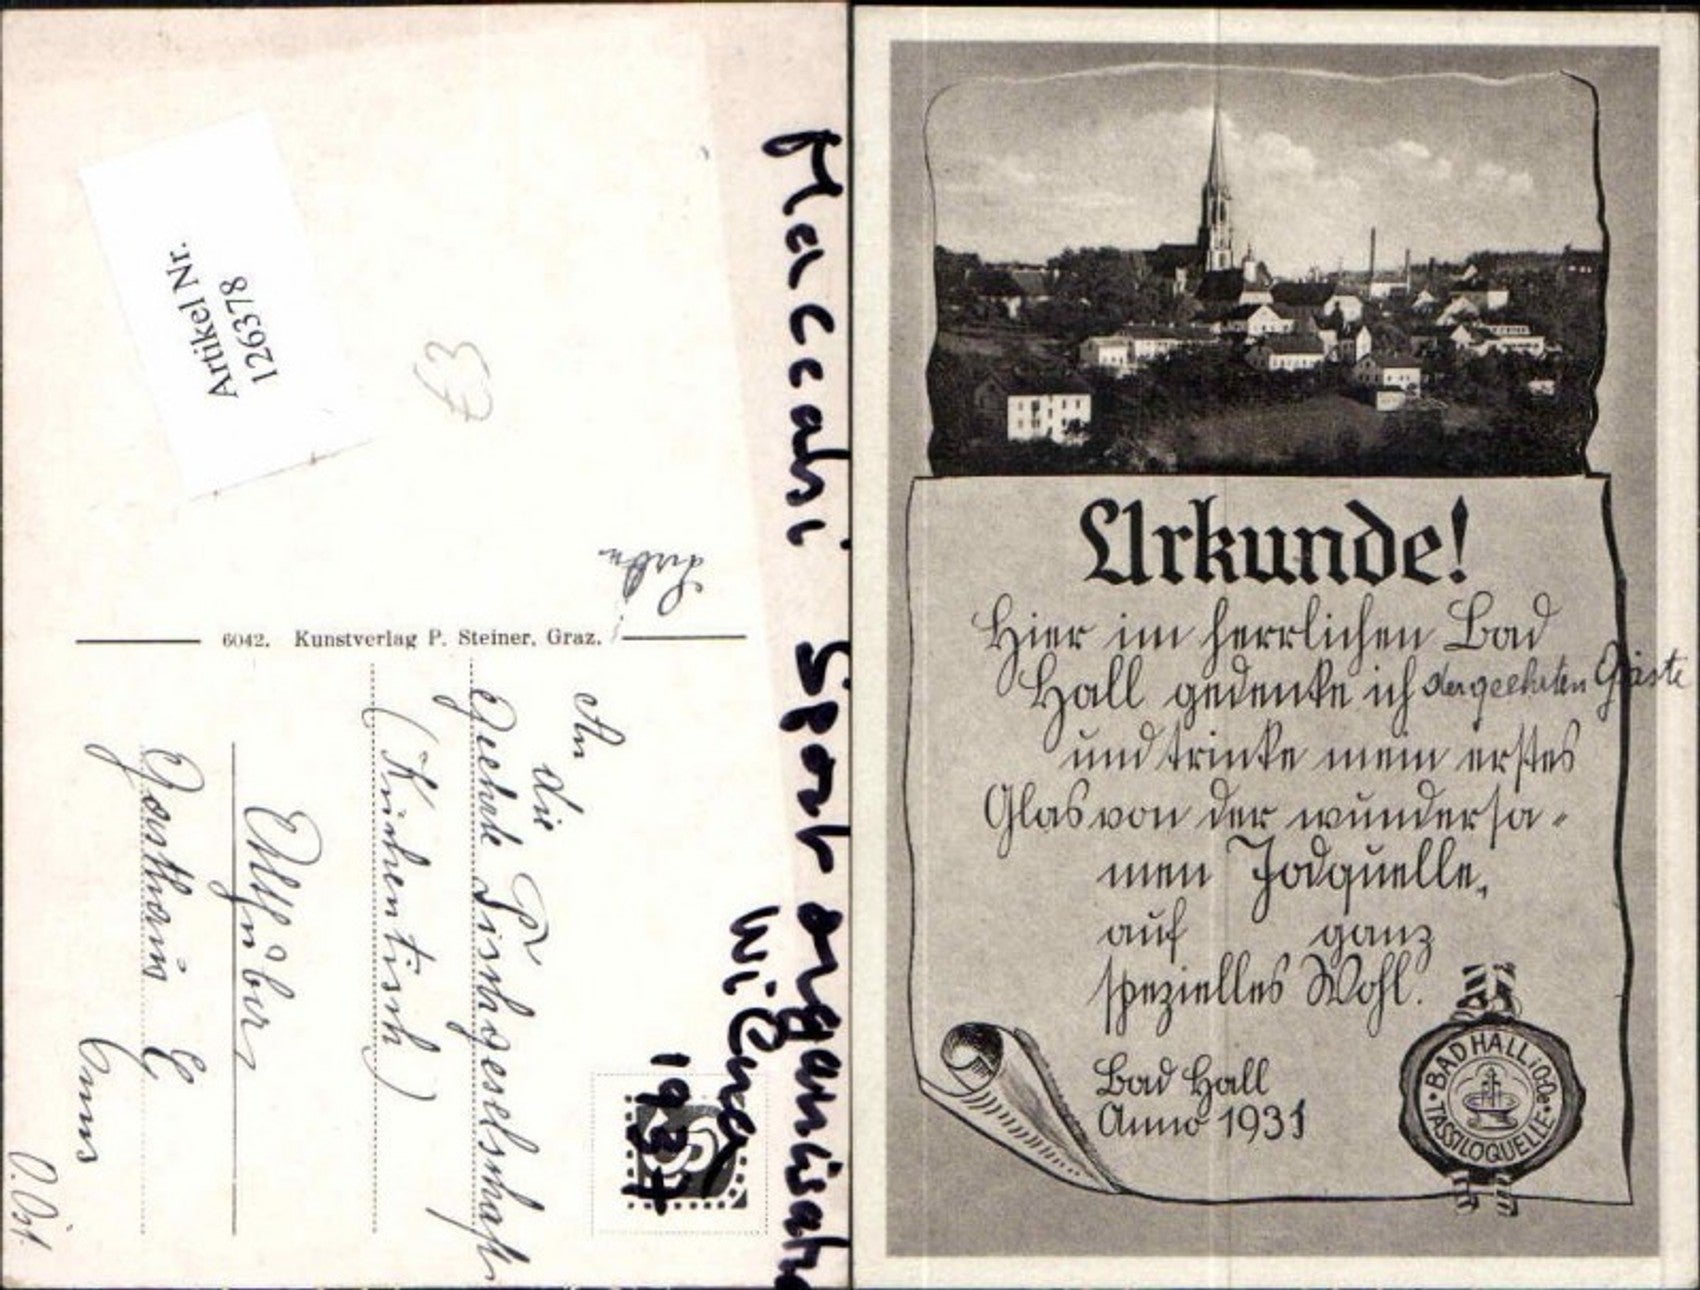 Artikel Nr.
126378
Maccabi Sport organisat
Wiener
1937
6042. Kunstverlag P. Steiner, Graz.
An
die
Geehrte Tischgesellschaft
(Küchentisch)
Gasthaus
Enns
O. Öst.
Urkunde!
Hier im herrlichen Bad
Hall gedenke ich der geehrten Gäste
und trinke mein erstes
Glas von der wundersa-
men Jodquelle,
auf ganz
spezielles Wohl.
Bad Hall
Anno 1931
BAD HALL i. O.Oe.
TASSILOQUELLE